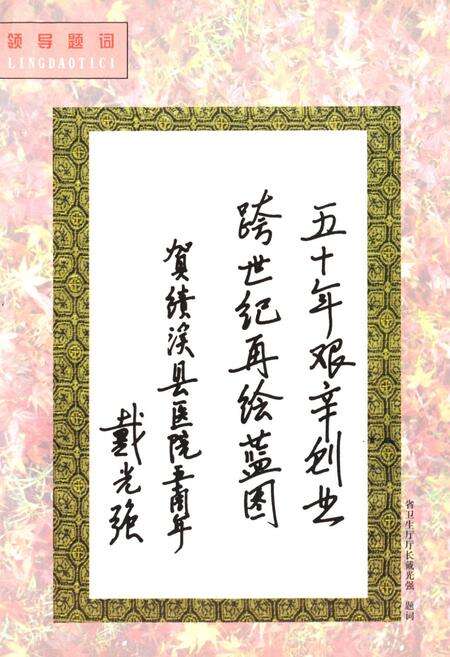 领导题词
LINGDAOTICI
五十年艰辛创业
跨世纪再绘蓝图
贺绩溪县医院五十周年
戴光强
省卫生厅厅长戴光强 题词